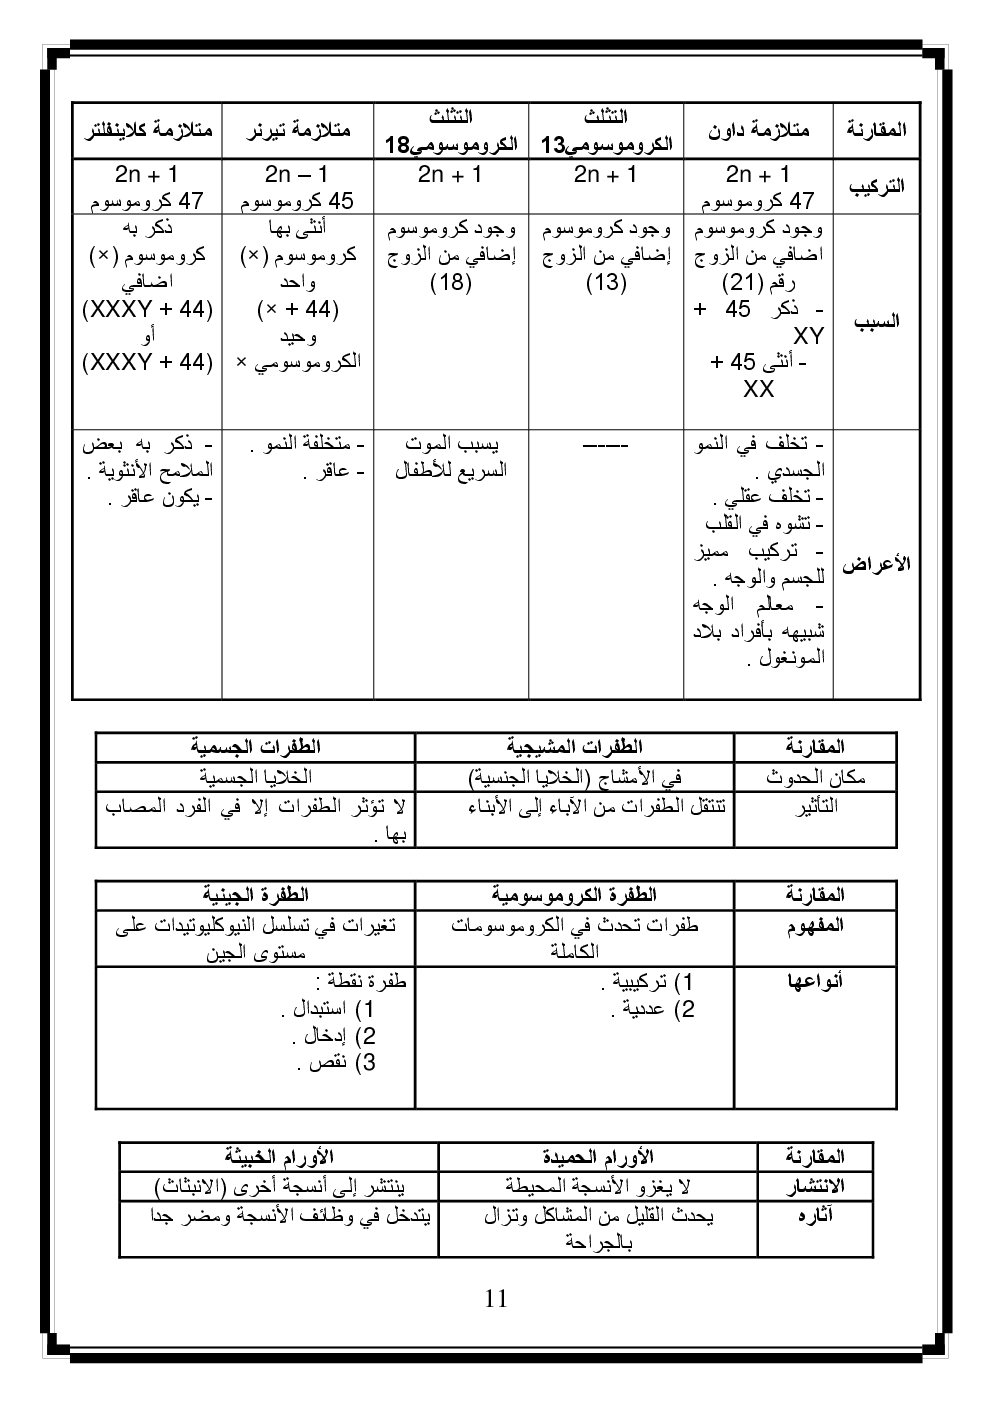 المقارنة
متلازمة داون
التثلث
الكروموسومي13
التثلث
الكروموسومي18
متلازمة تيرنر
متلازمة كلاينفلتر
التركيب
2n + 1
47 كروموسوم
2n + 1
2n + 1
2n – 1
45 كروموسوم
2n + 1
47 كروموسوم
السبب
وجود كروموسوم
اضافي من الزوج
رقم (21)
- ذكر 45 +
XY
- أنثى 45 +
XX
وجود كروموسوم
إضافي من الزوج
(13)
وجود كروموسوم
إضافي من الزوج
(18)
أنثى بها
كروموسوم (×)
واحد
(44 + ×)
وحيد
الكروموسومي ×
ذكر به
كروموسوم (×)
اضافي
(44 + XXXY)
أو
(44 + XXXY)
الأعراض
- تخلف في النمو
الجسدي .
- تخلف عقلي .
- تشوه في القلب
- تركيب مميز
للجسم والوجه .
- معالم الوجه
شبيهه بأفراد بلاد
المونغول .
------
يسبب الموت
السريع للأطفال
- متخلفة النمو .
- عاقر .
- ذكر به بعض
الملامح الأنثوية .
- يكون عاقر .
المقارنة
الطفرات المشيجية
الطفرات الجسمية
مكان الحدوث
في الأمشاج (الخلايا الجنسية)
الخلايا الجسمية
التأثير
تنتقل الطفرات من الآباء إلى الأبناء
لا تؤثر الطفرات إلا في الفرد المصاب
بها .
المقارنة
الطفرة الكروموسومية
الطفرة الجينية
المفهوم
طفرات تحدث في الكروموسومات
الكاملة
تغيرات في تسلسل النيوكليوتيدات على
مستوى الجين
أنواعها
1) تركيبية .
2) عددية .
طفرة نقطة :
1) استبدال .
2) إدخال .
3) نقص .
المقارنة
الأورام الحميدة
الأورام الخبيثة
الانتشار
لا يغزو الأنسجة المحيطة
ينتشر إلى أنسجة أخرى (الانبثاث)
آثاره
يحدث القليل من المشاكل وتزال
بالجراحة
يتدخل في وظائف الأنسجة ومضر جدا
11